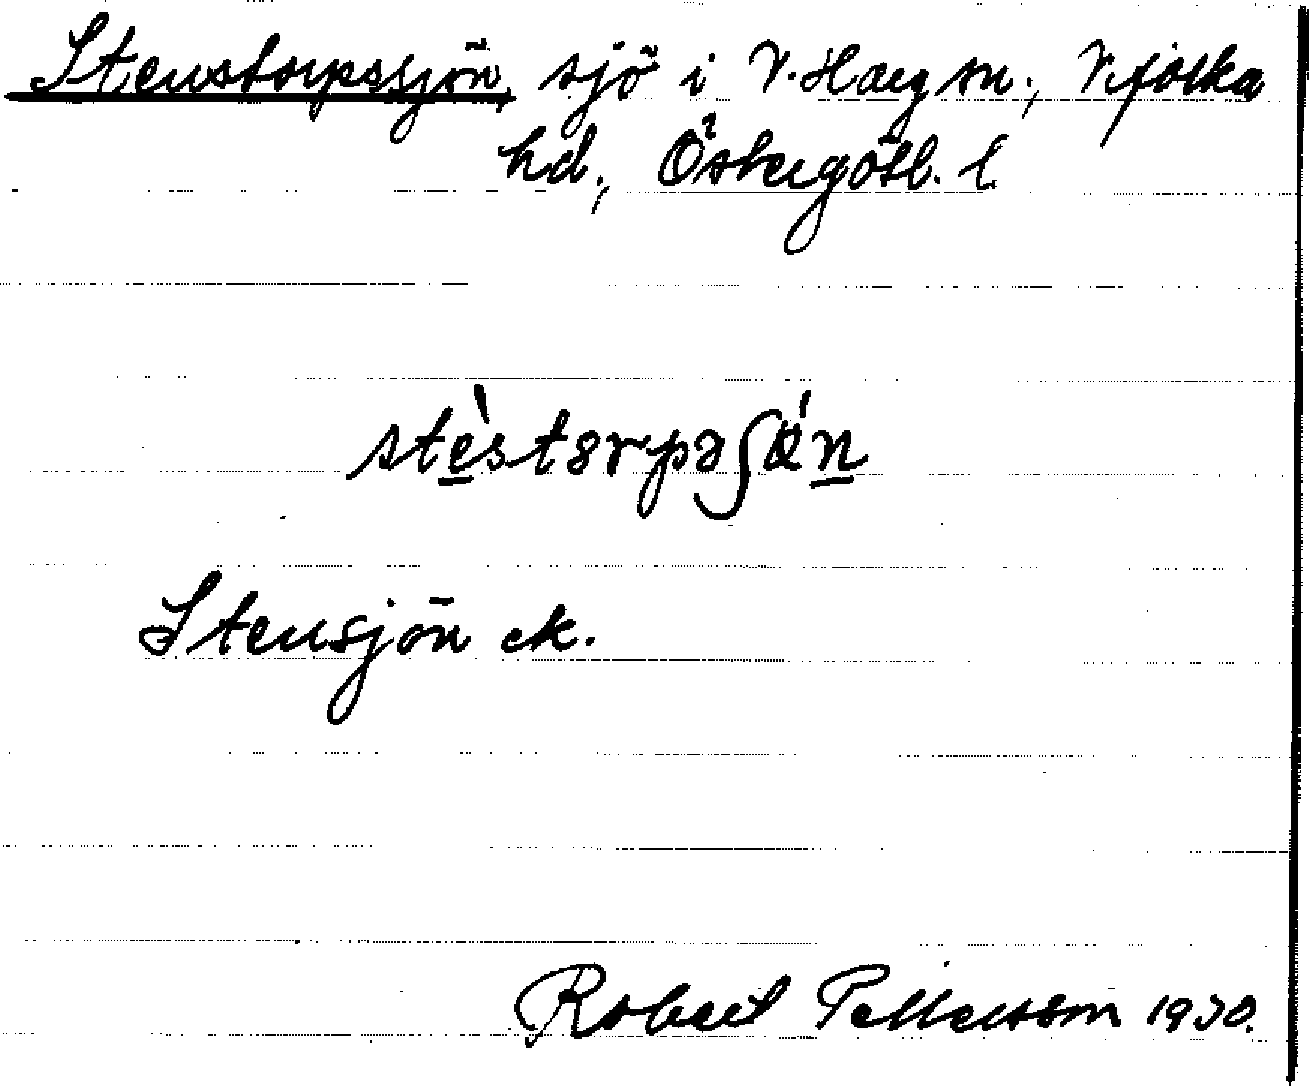 Stenstorpssjön, sjö i V. Harg sn., Vifolka
hd., Östergötl. l.
stès̀tørpəʃǿn
Stensjön ek.
Robert Pettersson 1930.